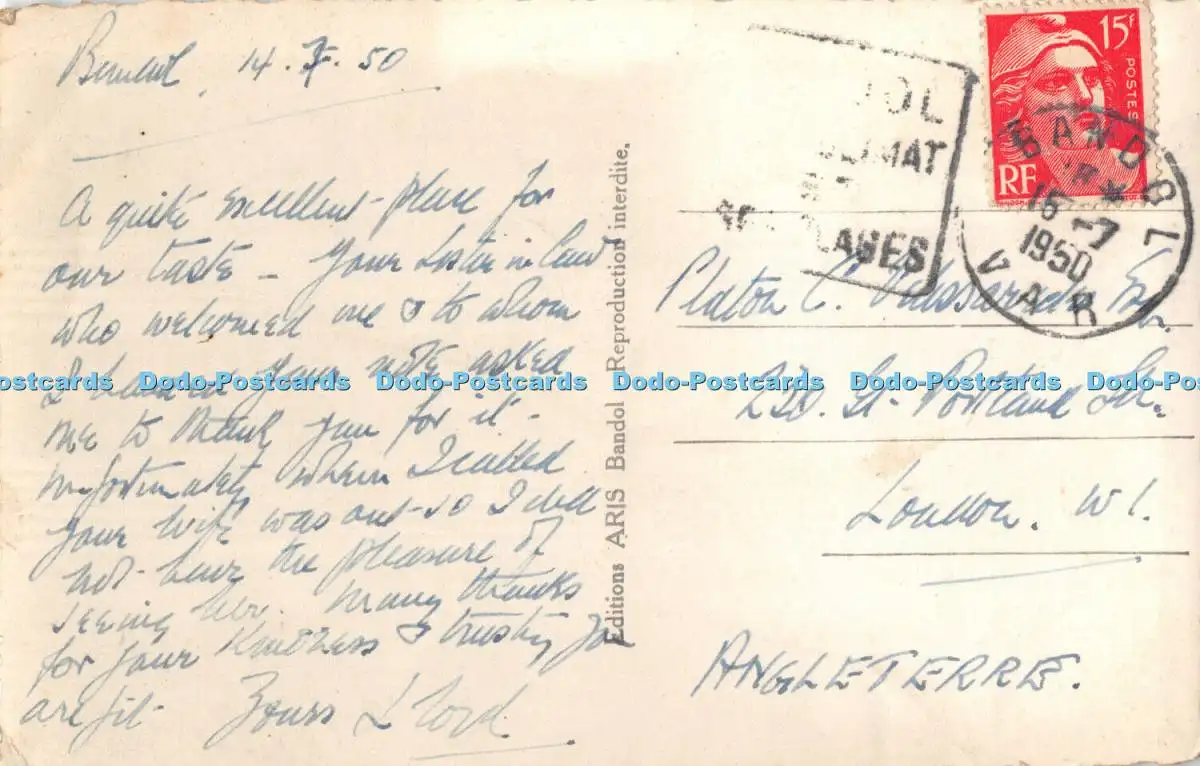 14.7.50
A quite excellent place for
our taste - Your sister in law
who welcomed me & to whom
I your note asked
me to thank you for it -
unfortunately when I called
your wife was out - so I did
not have the pleasure of
seeing her. Many thanks
for your kindness & trusting you
are fit. Yours
Editions ARIS Bandol Reproduction interdite.
CLIMAT
PLAGES
15f
POSTES
RF
BANDOL
15 -7
1950
VAR
Platon C.
Portland St.
London. W1.
ANGLETERRE.
Dodo-Postcards Dodo-Postcards Dodo-Postcards Dodo-Postcards Dodo-Postcards